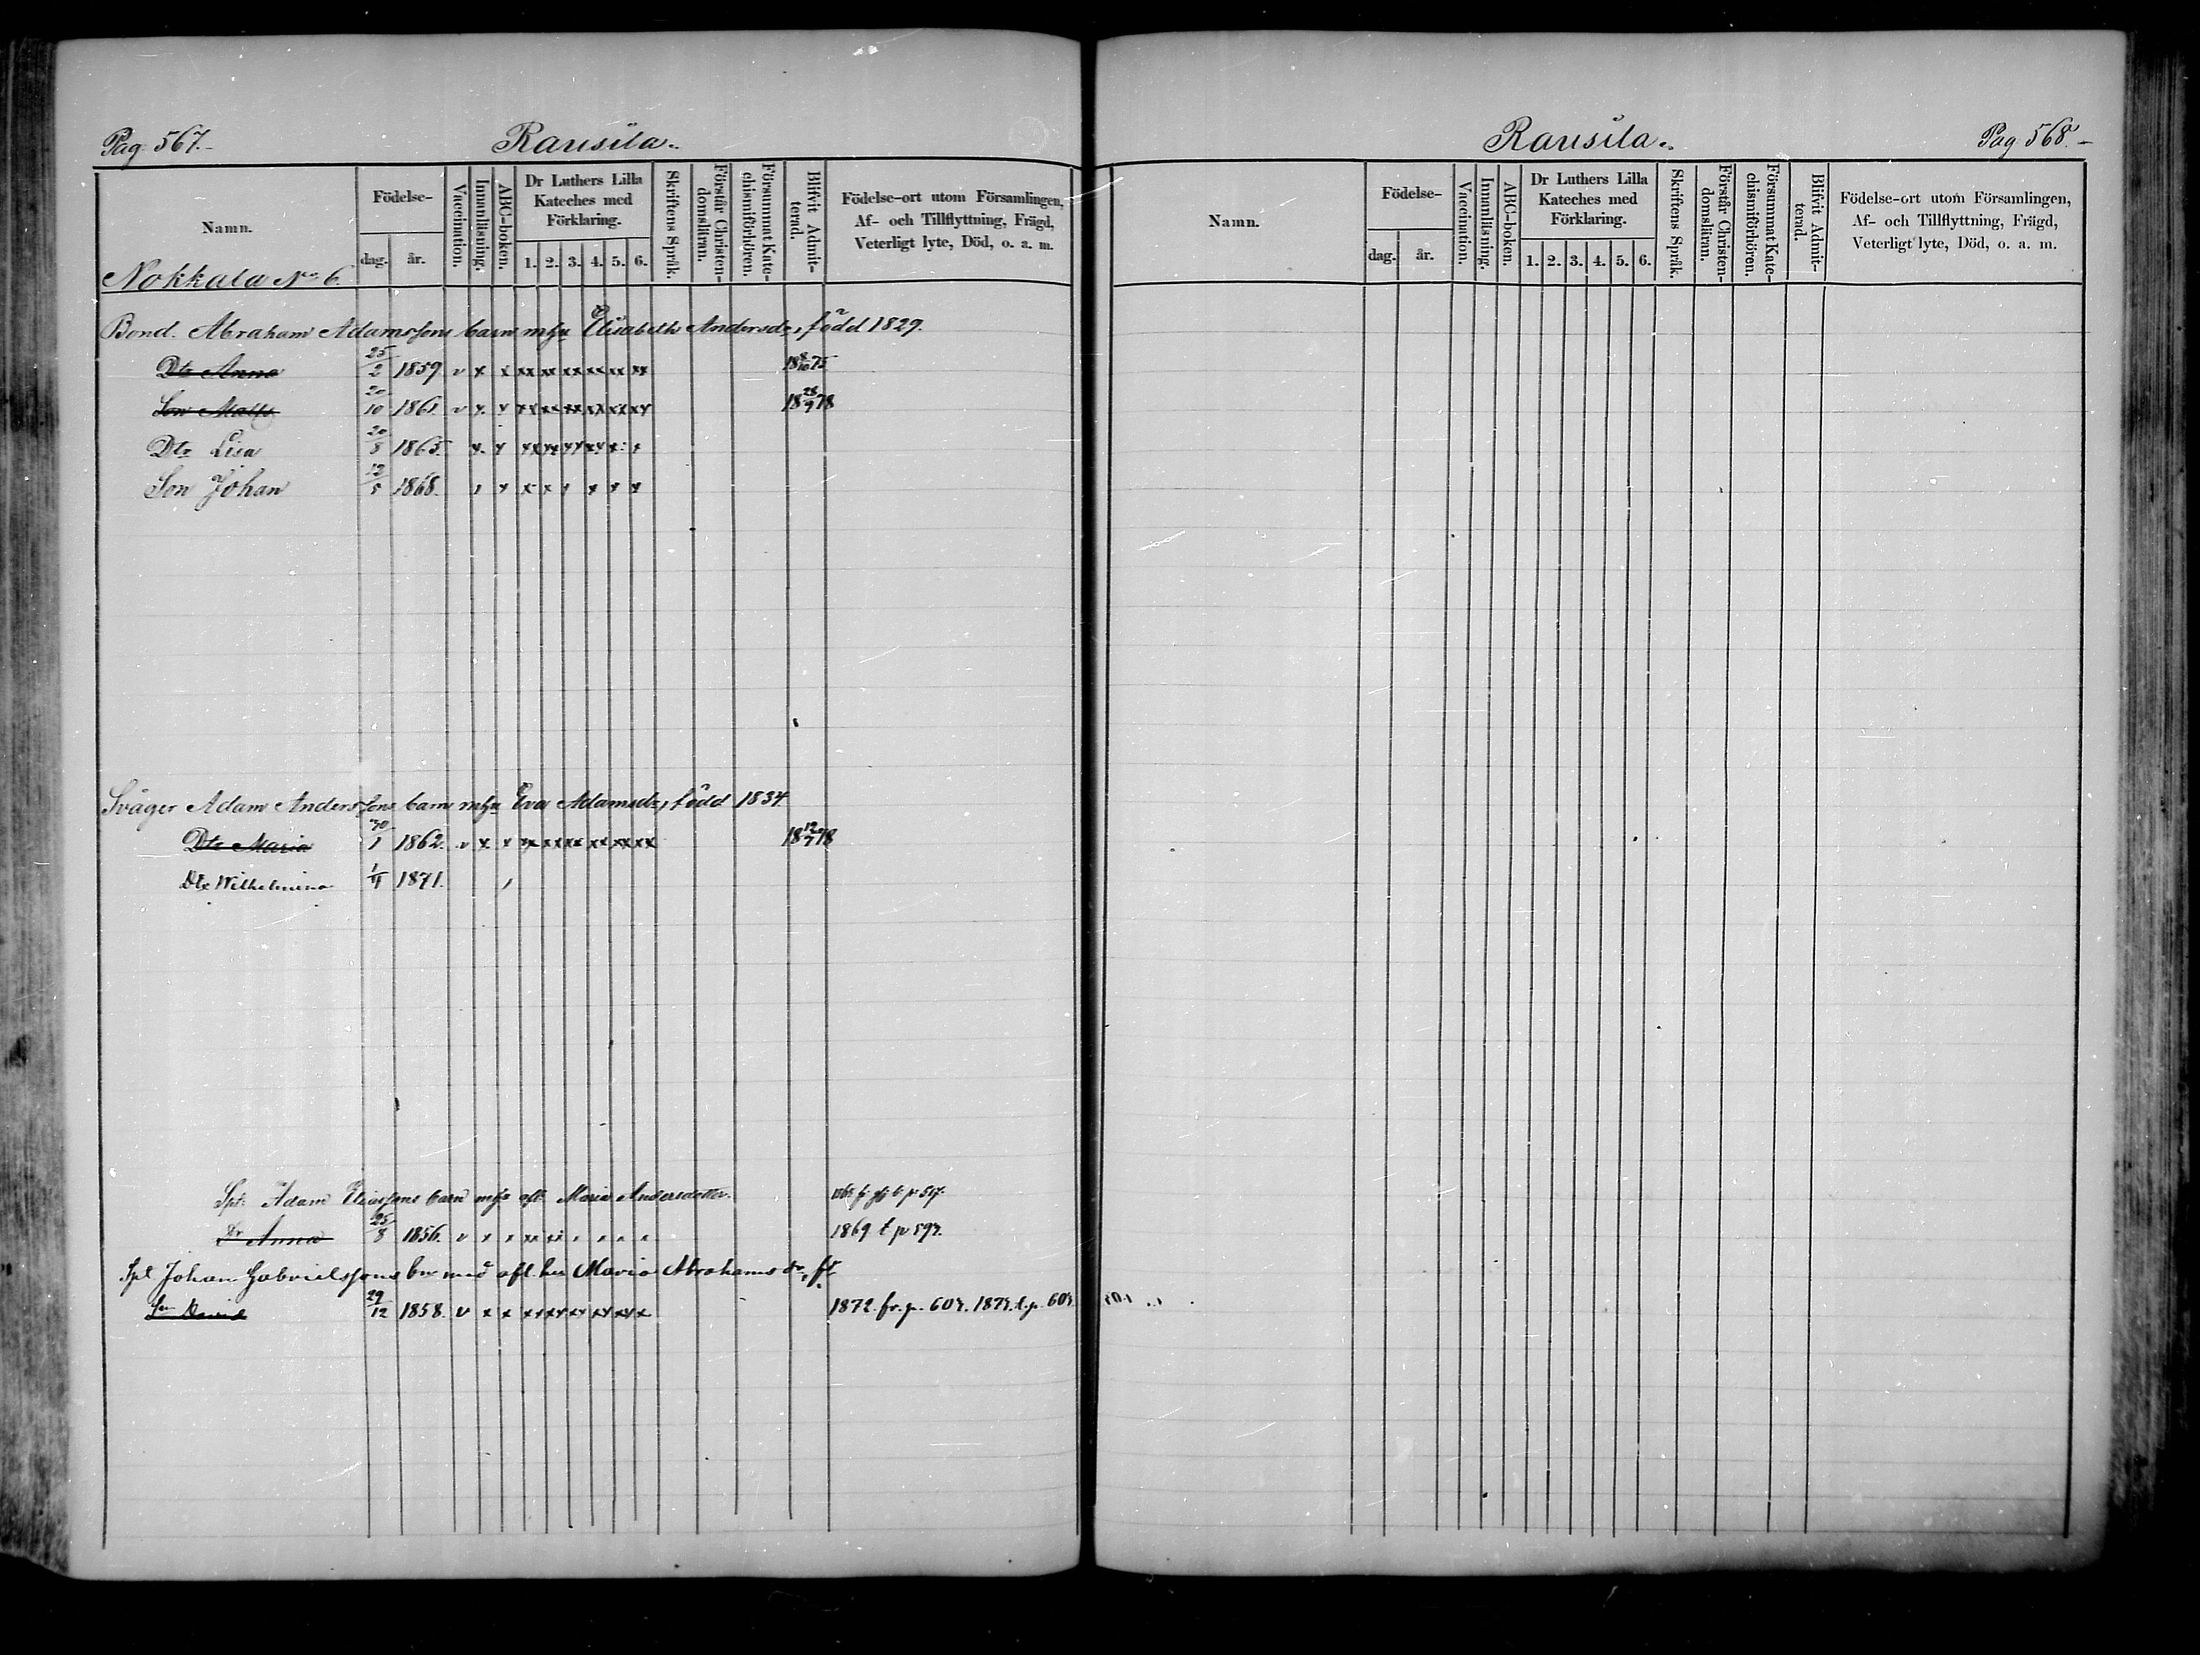 Pag. 567.
Rausila.
Namn.
Födelse-
dag.
år.
Vaccination.
Innanläsning.
ABC-boken.
Dr Luthers Lilla
Kateches med
Förklaring.
1. 2. 3. 4. 5. 6.
Skriftens Språk.
Förstår Christen-
domsläran.
Försummat Kate-
chismiförhören.
Blifvit Admit-
terad.
Födelse-ort utom Församlingen,
Af- och Tillflyttning, Frägd,
Veterligt lyte, Död, o. a. m.
Nokkala No 6.
Bond. Abraham Adamssons barn mhu Elisabeth Andersdr, född 1829.
Dtr Anna 25/2 1859. v x x xx xx xx xx xx xx 18 8/10 75
Son Matts 20/10 1861. v x x xx xx xx xx xx xx 18 28/9 78
Dtr Lisa 20/8 1865. x x xx xx xx xx x
Son Johan 12/5 1868. x x x x x x
Svåger Adam Anderssons barn mhu Eva Adamsdr, född 1834
Dtr Maria 30/1 1862. v x x xx xx xx xx xx xx 18 12/7 78
Dtr Wilhelmina 1871.
Spt. Adam Eliassons barn mhu afl. Maria Andersdotter.
Dr Anna 25/8 1856. v x x xx xx 1869 t p 592.
Spt Johan Gabrielssons bn med afl. hu Maria Abrahamsdr, ft
Sn David 29/12 1858. v x x xx xx xx xx xx x 1872. fr. p. 602. 1873. t. p. 602
Rausila.
Pag 568.
Namn.
Födelse-
dag.
år.
Vaccination.
Innanläsning.
ABC-boken.
Dr Luthers Lilla
Kateches med
Förklaring.
1. 2. 3. 4. 5. 6.
Skriftens Språk.
Förstår Christen-
domsläran.
Försummat Kate-
chismiförhören.
Blifvit Admit-
terad.
Födelse-ort utom Församlingen,
Af- och Tillflyttning, Frägd,
Veterligt lyte, Död, o. a. m.